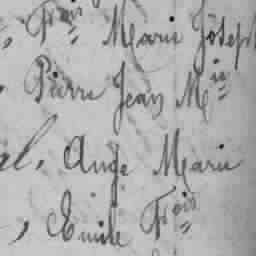 , Frois Marie Joseph
, Pierre Jean Mie
al, Ange Marie
, Emile Frois